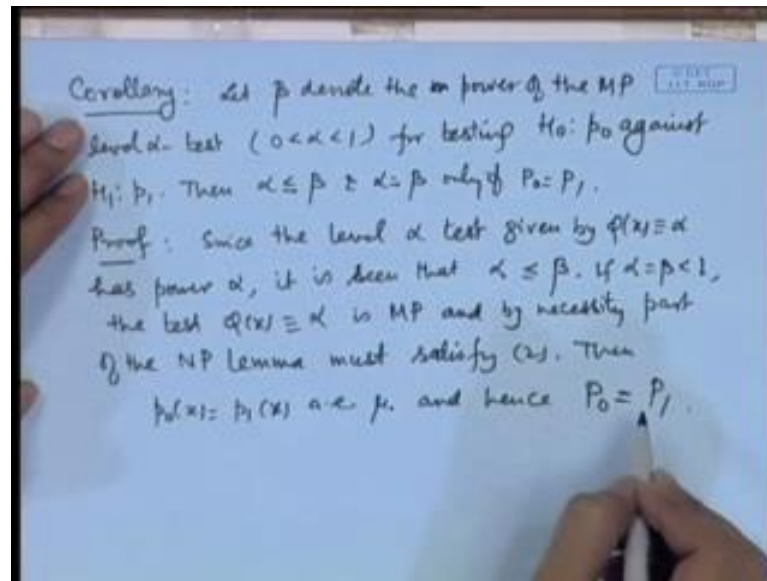 Corollary: Let β denote the power of the MP
level α-test (0<α<1) for testing H₀: p₀ against
H₁: p₁. Then α ≤ β & α=β only if P₀=P₁.
Proof: Since the level α test given by φ(x)≡α
has power α, it is seen that α ≤ β. If α=β<1,
the test φ(x)≡α is MP and by necessity part
of the NP Lemma must satisfy (2). Then
p₀(x)=p₁(x) a.e. μ. and hence P₀=P₁.